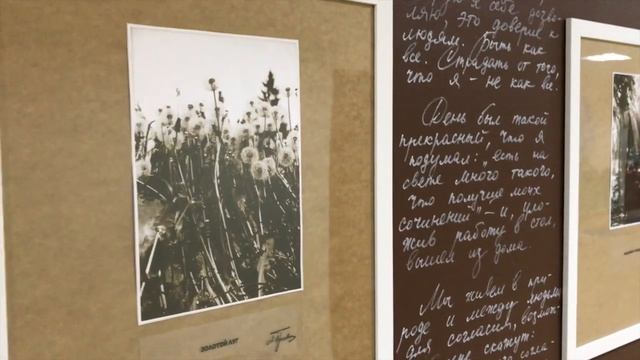 ЗОЛОТОЙ ЛУГ
я себе
Это доверие к
людям. Быть как
все. Страдать от того,
что я - не как все.
День был такой
прекрасный, что я
подумал: „есть на
свете много такого,
что получше моих
сочинений" - и, уло-
жив работу в стол,
вышел из дома.
Мы живем в при-
роде и между людьми
для согласия,
скажут: